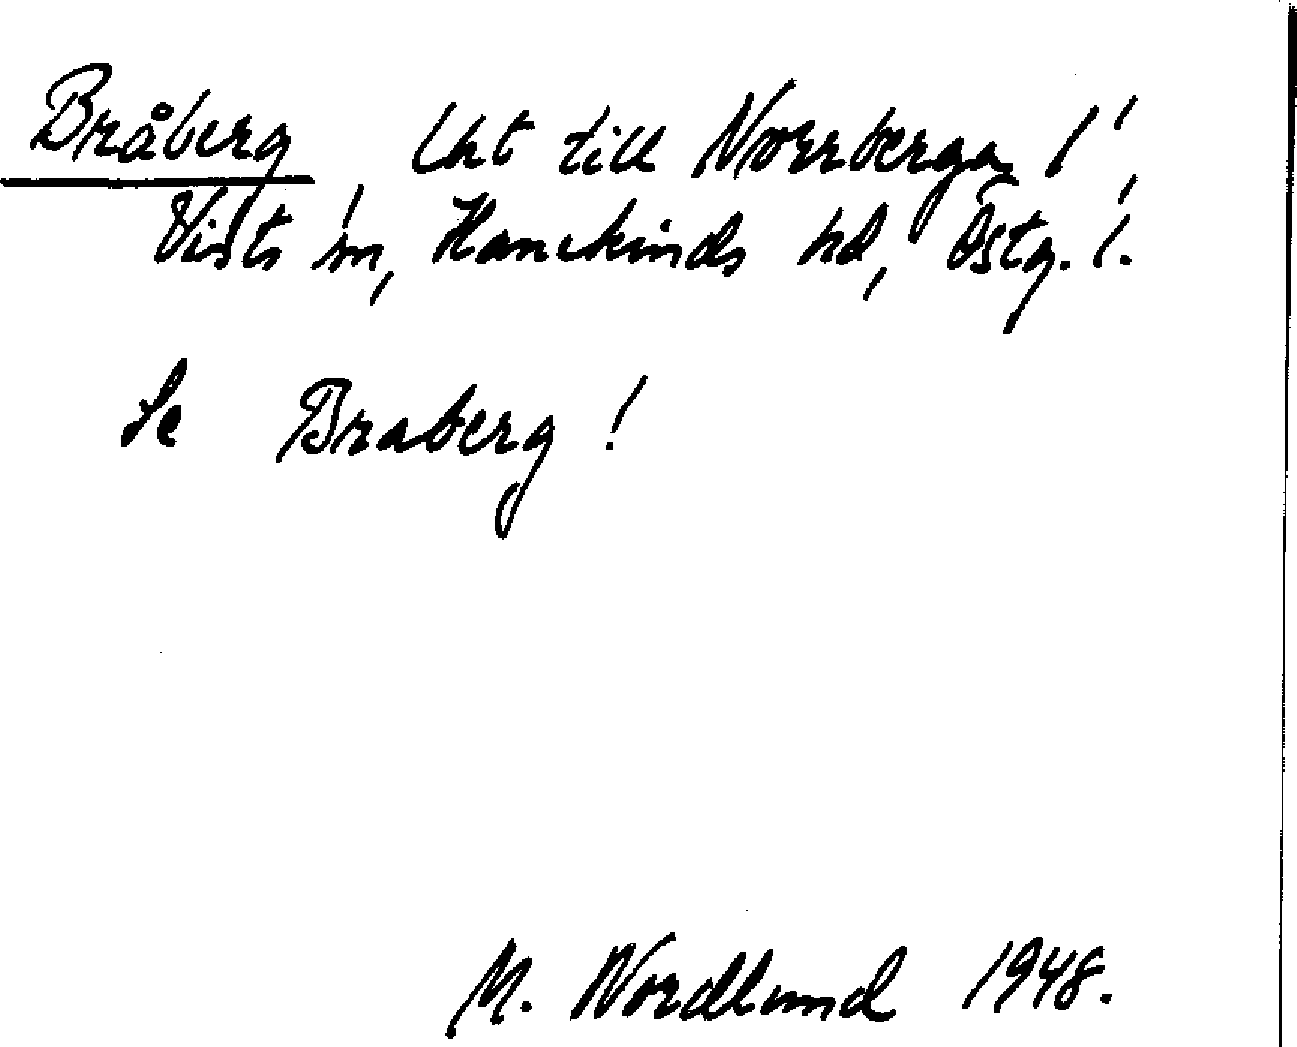 Bråberg Lht till Norrberga 1'
Vists sn, Hanekinds hd, Östg. l.
Se Braberg!
M. Nordlund 1948.